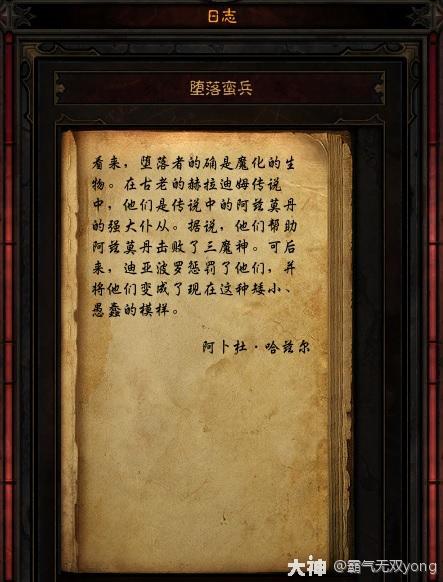 日志
堕落蛮兵
看来，堕落者的确是魔化的生
物。在古老的赫拉迪姆传说
中，他们是传说中的阿兹莫丹
的强大仆从。据说，他们帮助
阿兹莫丹击败了三魔神。可后
来，迪亚波罗惩罚了他们，并
将他们变成了现在这种矮小、
愚蠢的模样。
阿卜杜·哈兹尔
大神 @霸气无双yong